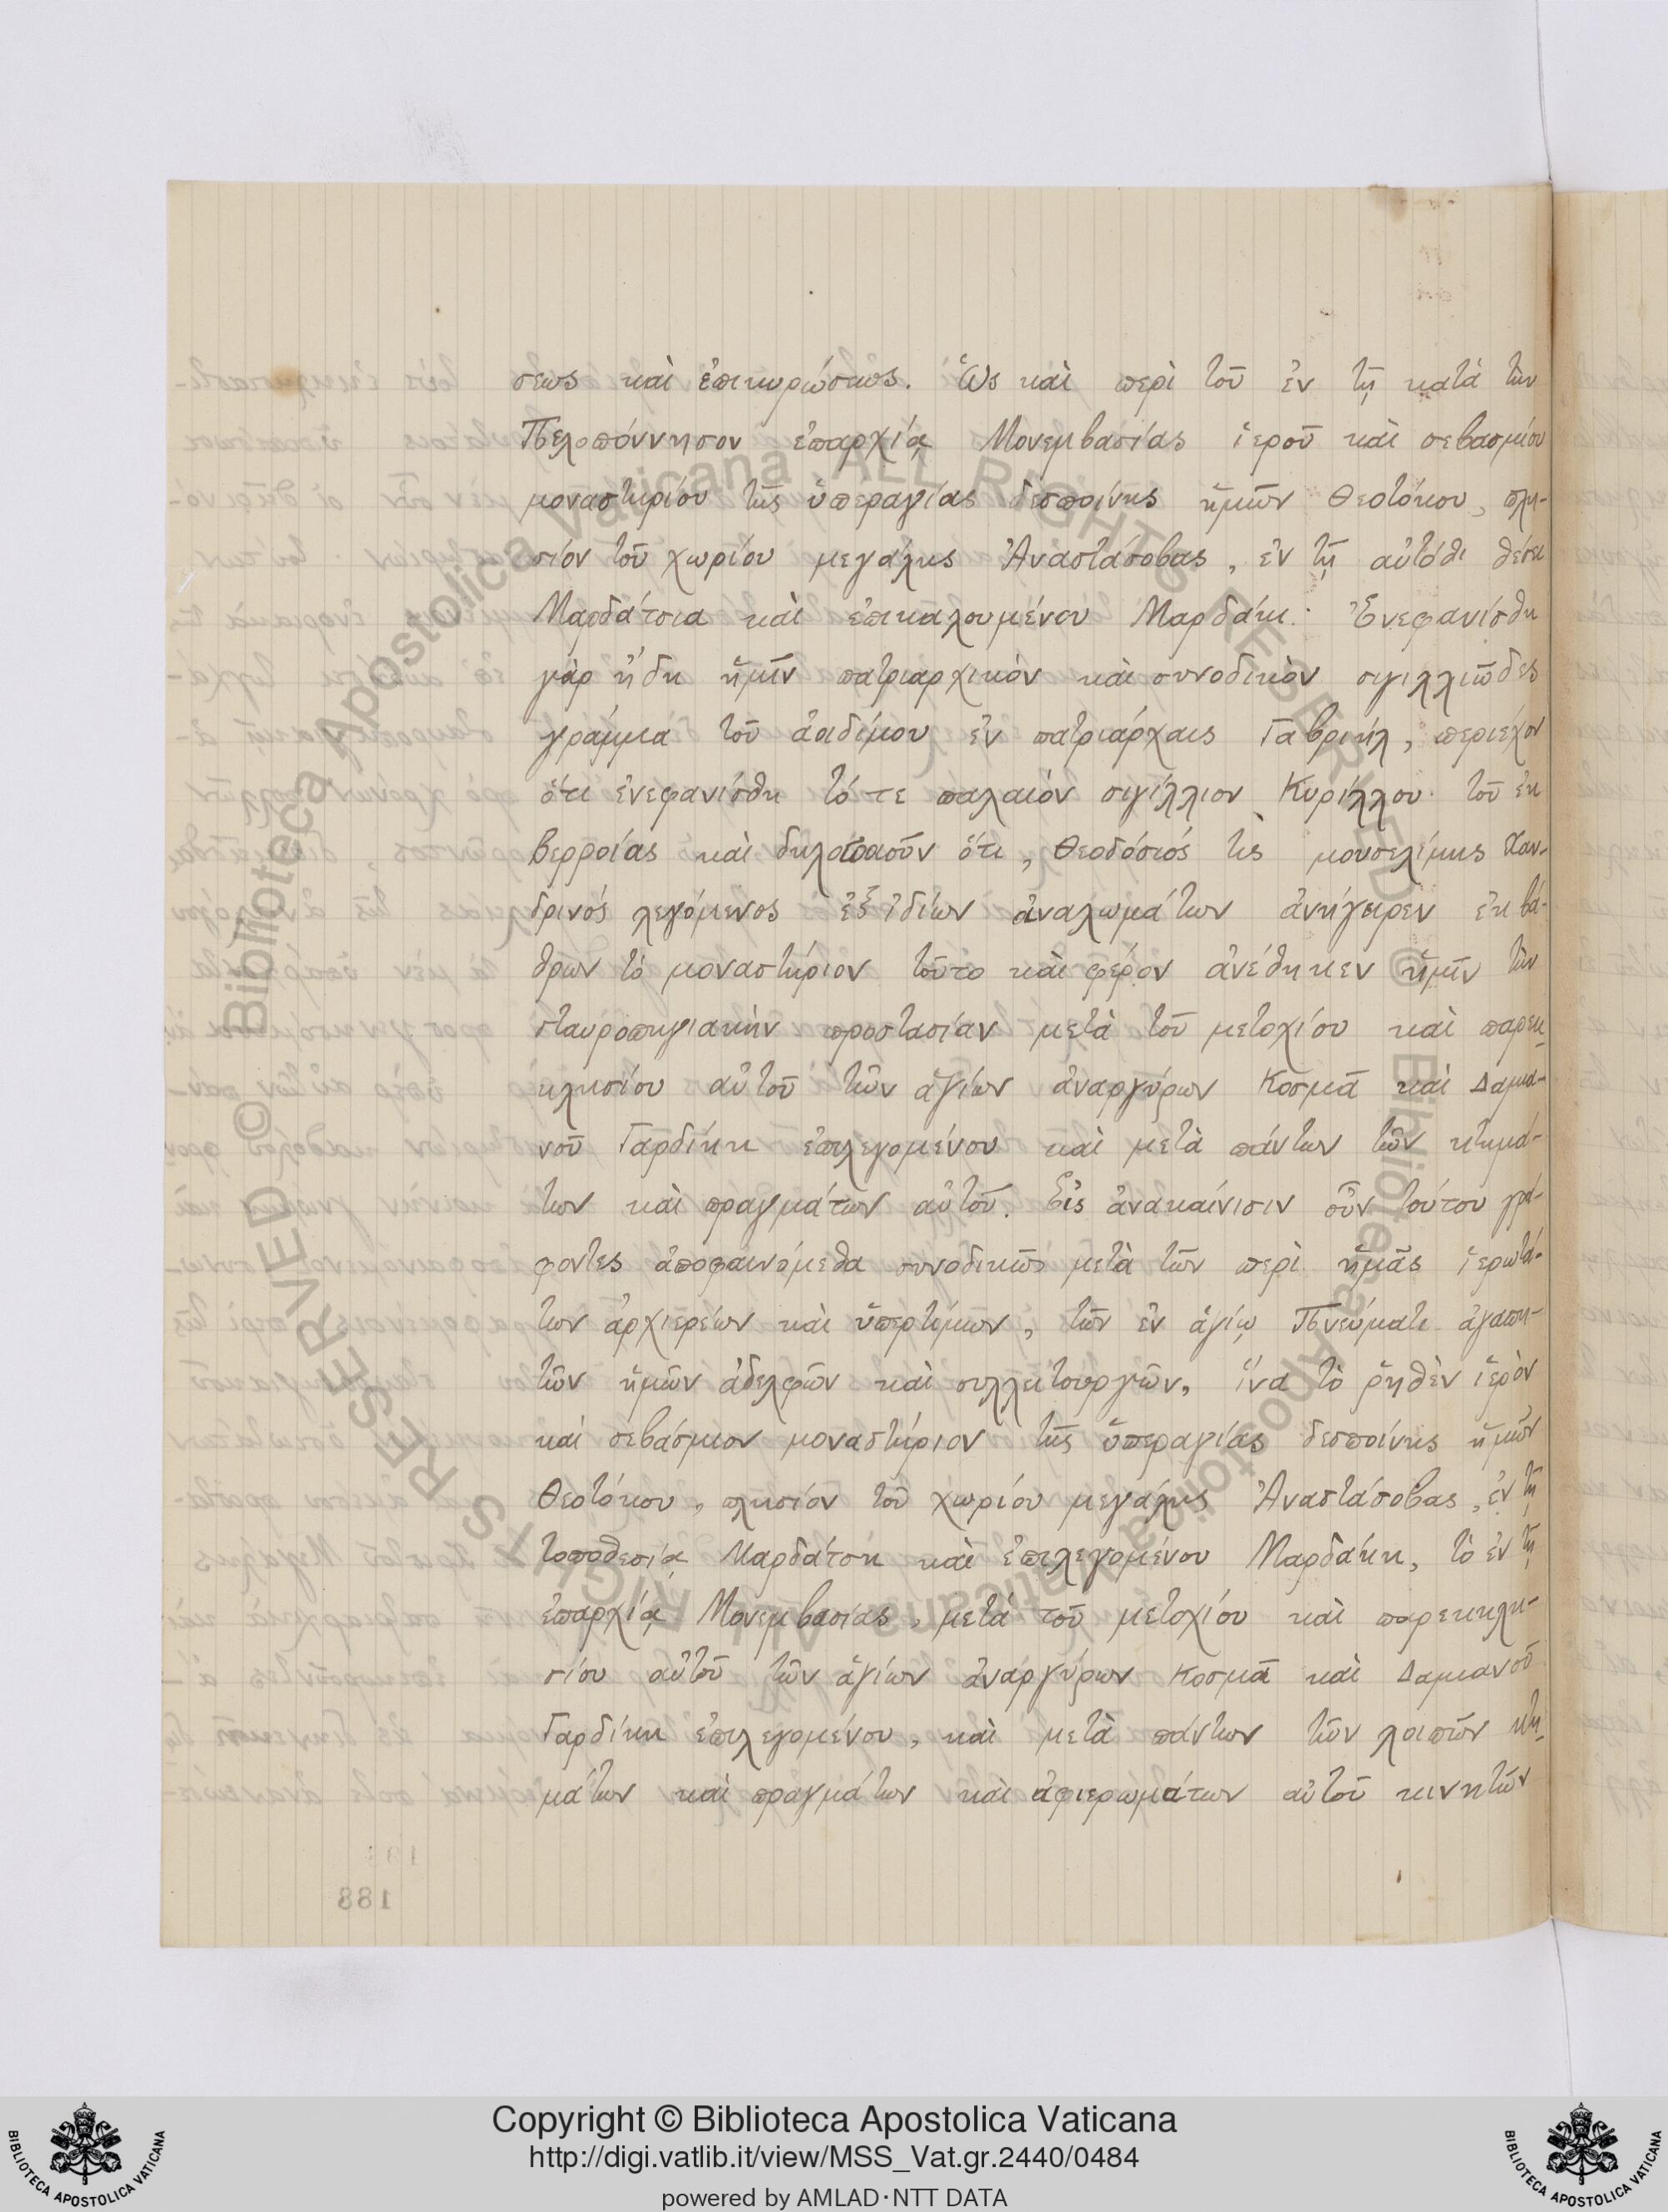 σεως καὶ ἐπικυρώσεως. Ὡς καὶ περὶ τοῦ ἐν τῇ κατὰ τὴν
Πελοπόννησον ἐπαρχίᾳ Μονεμβασίας ἱεροῦ καὶ σεβασμίου
μοναστηρίου τῆς ὑπεραγίας δεσποίνης ἡμῶν Θεοτόκου, πλη-
σίον τοῦ χωρίου μεγάλης Ἀναστάσοβας, ἐν τῇ αὐτόθι θέσει
Μαρδάτσια καὶ ἐπικαλουμένου Μαρδάκι. Ἐνεφανίσθη
γὰρ ἤδη ἡμῖν πατριαρχικὸν καὶ συνοδικὸν σιγιλλιῶδες
γράμμα τοῦ ἀοιδίμου ἐν πατριάρχαις Γαβριήλ, περιέχον
ὅτι ἐνεφανίσθη τό τε παλαιὸν σιγίλλιον Κυρίλλου τοῦ ἐκ
Βερροίας καὶ δηλοποιοῦν ὅτι, Θεοδόσιός τις μουσελίμης Χαν-
δρινός λεγόμενος ἐξ ἰδίων ἀναλωμάτων ἀνήγειρεν ἐκ βά-
θρων τὸ μοναστήριον τοῦτο καὶ φέρον ἀνέθηκεν ἡμῖν τὴν
σταυροπηγιακὴν προστασίαν μετὰ τοῦ μετοχίου καὶ παρεκ-
κλησίου αὐτοῦ τῶν ἁγίων ἀναργύρων Κοσμᾶ καὶ Δαμια-
νοῦ Γαρδίκη ἐπιλεγομένου καὶ μετὰ πάντων τῶν κτημά-
των καὶ πραγμάτων αὐτοῦ. Εἰς ἀνακαίνισιν οὖν τούτου γρά-
φοντες ἀποφαινόμεθα συνοδικῶς μετὰ τῶν περὶ ἡμᾶς ἱερωτά-
των ἀρχιερέων καὶ ὑπερτίμων, τῶν ἐν ἁγίῳ Πνεύματι ἀγαπη-
τῶν ἡμῶν ἀδελφῶν καὶ συλλειτουργῶν, ἵνα τὸ ῥηθὲν ἱερὸν
καὶ σεβάσμιον μοναστήριον τῆς ὑπεραγίας δεσποίνης ἡμῶν
Θεοτόκου, πλησίον τοῦ χωρίου μεγάλης Ἀναστάσοβας, ἐν τῇ
τοποθεσίᾳ Μαρδάτση καὶ ἐπιλεγομένου Μαρδάκη, τὸ ἐν τῇ
ἐπαρχίᾳ Μονεμβασίας, μετά τοῦ μετοχίου καὶ παρεκκλη-
σίου αὐτοῦ τῶν ἁγίων ἀναργύρων Κοσμᾶ καὶ Δαμιανοῦ
Γαρδίκη ἐπιλεγομένου, καὶ μετὰ πάντων τῶν λοιπῶν κτη-
μάτων καὶ πραγμάτων καὶ ἀφιερωμάτων αὐτοῦ κινητῶν
188
© Biblioteca Apostolica Vaticana ALL RIGHTS RESERVED
© Biblioteca Apostolica Vaticana ALL RIGHTS RESERVED
Copyright © Biblioteca Apostolica Vaticana
http://digi.vatlib.it/view/MSS_Vat.gr.2440/0484
powered by AMLAD·NTT DATA
BIBLIOTECA APOSTOLICA VATICANA
BIBLIOTECA APOSTOLICA VATICANA